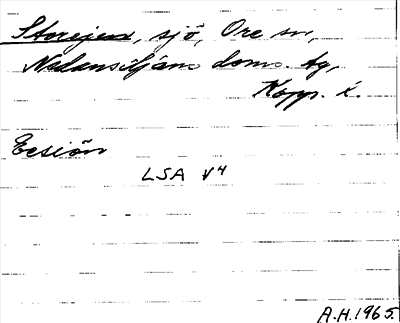 Storejen, sjö, Ore sn,
Nedansiljans doms. tg,
Kopp. l.
Eesiön
LSA V4
A.H. 1965.